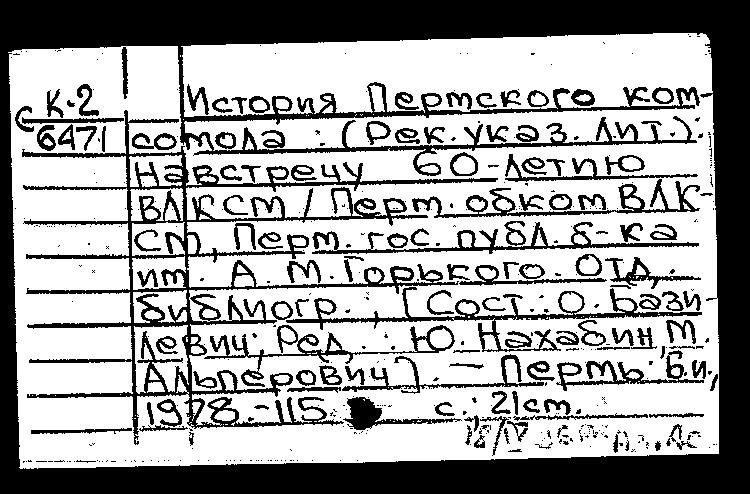 К-2 История Пермского ком-
С 6471 сомола : (Рек. указ. лит.):
Навстречу 60-летию
ВЛКСМ / Перм. обком ВЛК-
СМ, Перм. гос. публ. б-ка
им. А. М. Горького. Отд.
библиогр. ; [Сост.: О. Бази-
левич; Ред.: Ю. Нахабин, М.
Альперович]. — Пермь: Б.и.,
1978. - 115 с.; 21 см.
18/IV